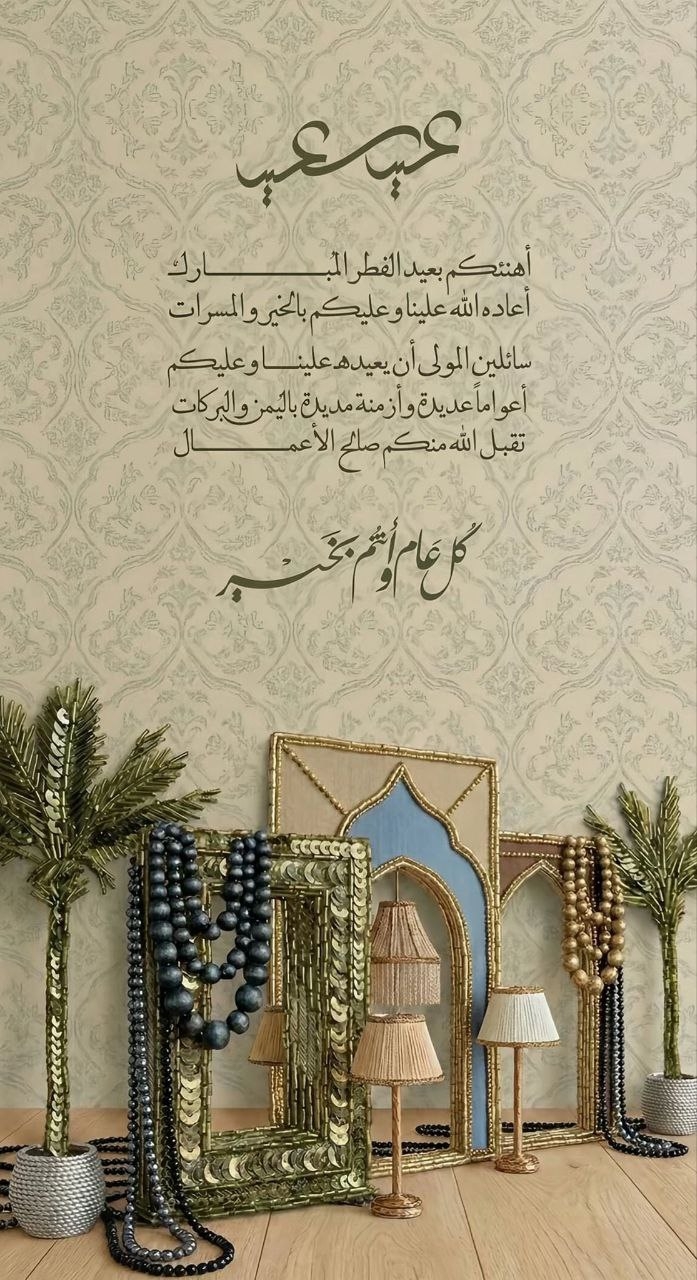 عيد سعيد
أهنئكم بعيد الفطر المُبـــــــــارك
أعاده الله علينا وعليكم بالخير والمسرات
سائلين المولى أن يعيده علينـــا وعليكم
أعواماً عديدة وأزمنة مديدة باليمن والبركات
تقبل الله منكم صالح الأعمـــــــــال
كُل عَام وأنتُم بَخَيـــر